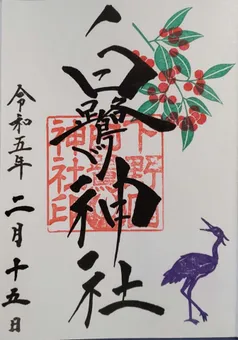 白鷺神社
下野国
神社印
令和五年
二月十五日